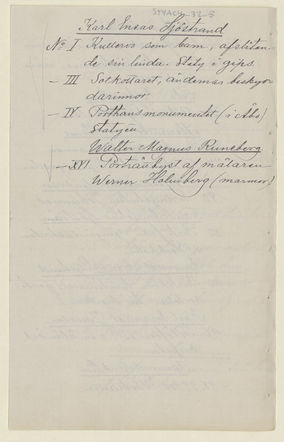 Karl Eneas Sjöstrand
No I Kullervo som barn, afslitan-
de sin linda. Staty i gips.
— III andernas beskyd-
darinnor
— IV. Porthansmonumentet (i Åbo)
statyen
Walter Magnus Runeberg
— XVI. Porträttbyst af målaren
Werner Holmberg (marmor)